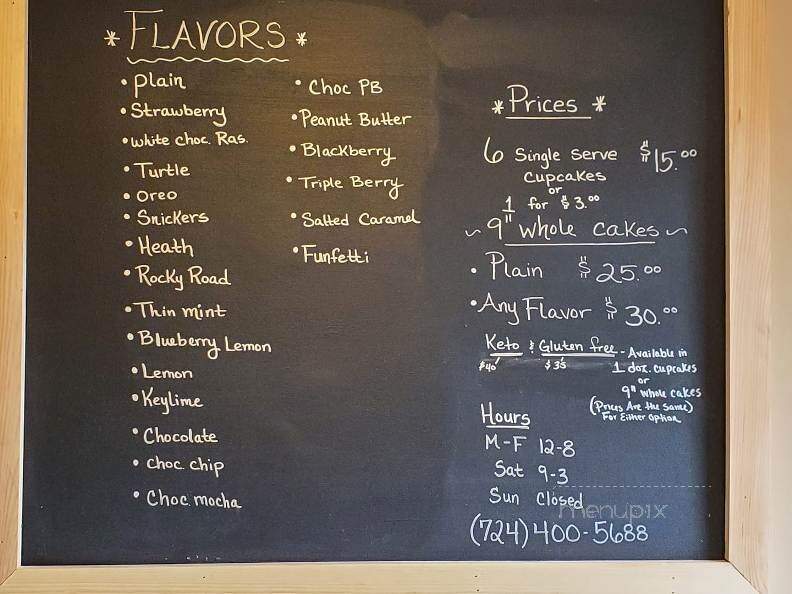 * FLAVORS *
• Plain
• Strawberry
• White choc. Ras.
• Turtle
• Oreo
• Snickers
• Heath
• Rocky Road
• Thin mint
• Blueberry Lemon
• Lemon
• Keylime
• Chocolate
• choc chip
• Choc mocha
• Choc PB
• Peanut Butter
• Blackberry
• Triple Berry
• Salted Caramel
• Funfetti
* Prices *
6 Single serve $15.00
Cupcakes
or
1 for $3.00
~ 9" whole cakes ~
• Plain $25.00
• Any Flavor $30.00
Keto & Gluten free - Available in
$40 $35 1 doz. cupcakes
or
9" whole cakes
(Prices Are the Same)
For Either Option
Hours
M-F 12-8
Sat 9-3
Sun Closed
menupix
(724) 400-5688